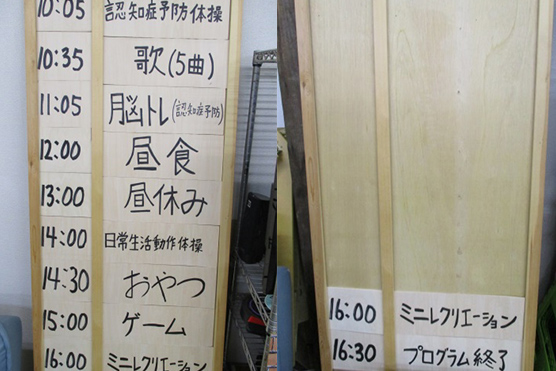 10:05 認知症予防体操
10:35 歌(5曲)
11:05 脳トレ(認知症予防)
12:00 昼食
13:00 昼休み
14:00 日常生活動作体操
14:30 おやつ
15:00 ゲーム
16:00 ミニレクリエーション
16:00 ミニレクリエーション
16:30 プログラム終了